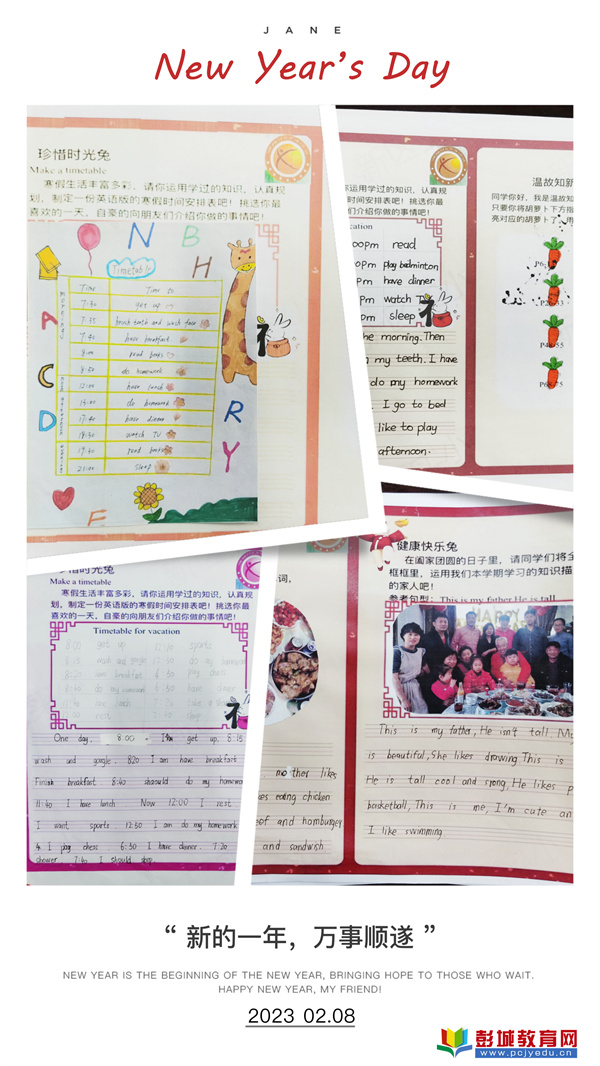 JANE
New Year's Day
珍惜时光兔
Make a timetable
寒假生活丰富多彩，请你运用学过的知识，认真规
划，制定一份英语版的寒假时间安排表吧！挑选你最
喜欢的一天，自豪的向朋友们介绍你做的事情吧！
N B
H
A
C
D
R
Y
F
Timetable
Time Time to
7:30 get up
7:35 brush teeth and wash face
7:40 have breakfast
8:00 read books
8:30 do homework
12:00 have lunch
14:00 do homework
17:40 have dinner
18:30 watch TV
19:00 read books
21:00 sleep
你运用学过的知识，认真规
寒假时间安排表吧！挑选你最
们介绍你做的事情吧！
cation
00pm read
0pm play badminton
pm have dinner
pm watch T
m sleep
he morning. Then
n my teeth. I have
do my homework
I go to bed
like to play
afternoon.
温故知新
同学你好，我是温故知
只要你将胡萝卜下方指
亮对应的胡萝卜
珍惜时光兔
Make a timetable
寒假生活丰富多彩，请你运用学过的知识，认真规
划，制定一份英语版的寒假时间安排表吧！挑选你最
喜欢的一天，自豪的向朋友们介绍你做的事情吧！
Timetable for vacation
One day. 8:00 get up. 8:15
wash and googe. 820 I am have breakfast
Finish breakfast 8:40 shaould do my homewo
11:40 I have lunch Now 12:00 I rest
I want sports. 12:50 I am do my homework
4. I play chess 6:30 I have dinner. 7:20
shower. 7:40 I should sleep.
词，
mother likes
kes eating chicken
eef and hamburger
and sandwish
健康快乐兔
在阖家团圆的日子里，请同学们将全
框框里，运用我们本学期学习的知识描
的家人吧！
参考句型：This is my father.He is tall
This is my father, He isn't tall. My
is beautiful, She likes drawing This is
He is tall cool and srong, He likes p
basketball, This is me, I'm cute an
I like swimming
“ 新的一年，万事顺遂 ”
NEW YEAR IS THE BEGINNING OF THE NEW YEAR, BRINGING HOPE TO THOSE WHO WAIT.
HAPPY NEW YEAR, MY FRIEND!
2023 02.08
彭城教育网
www.pcjyedu.cn